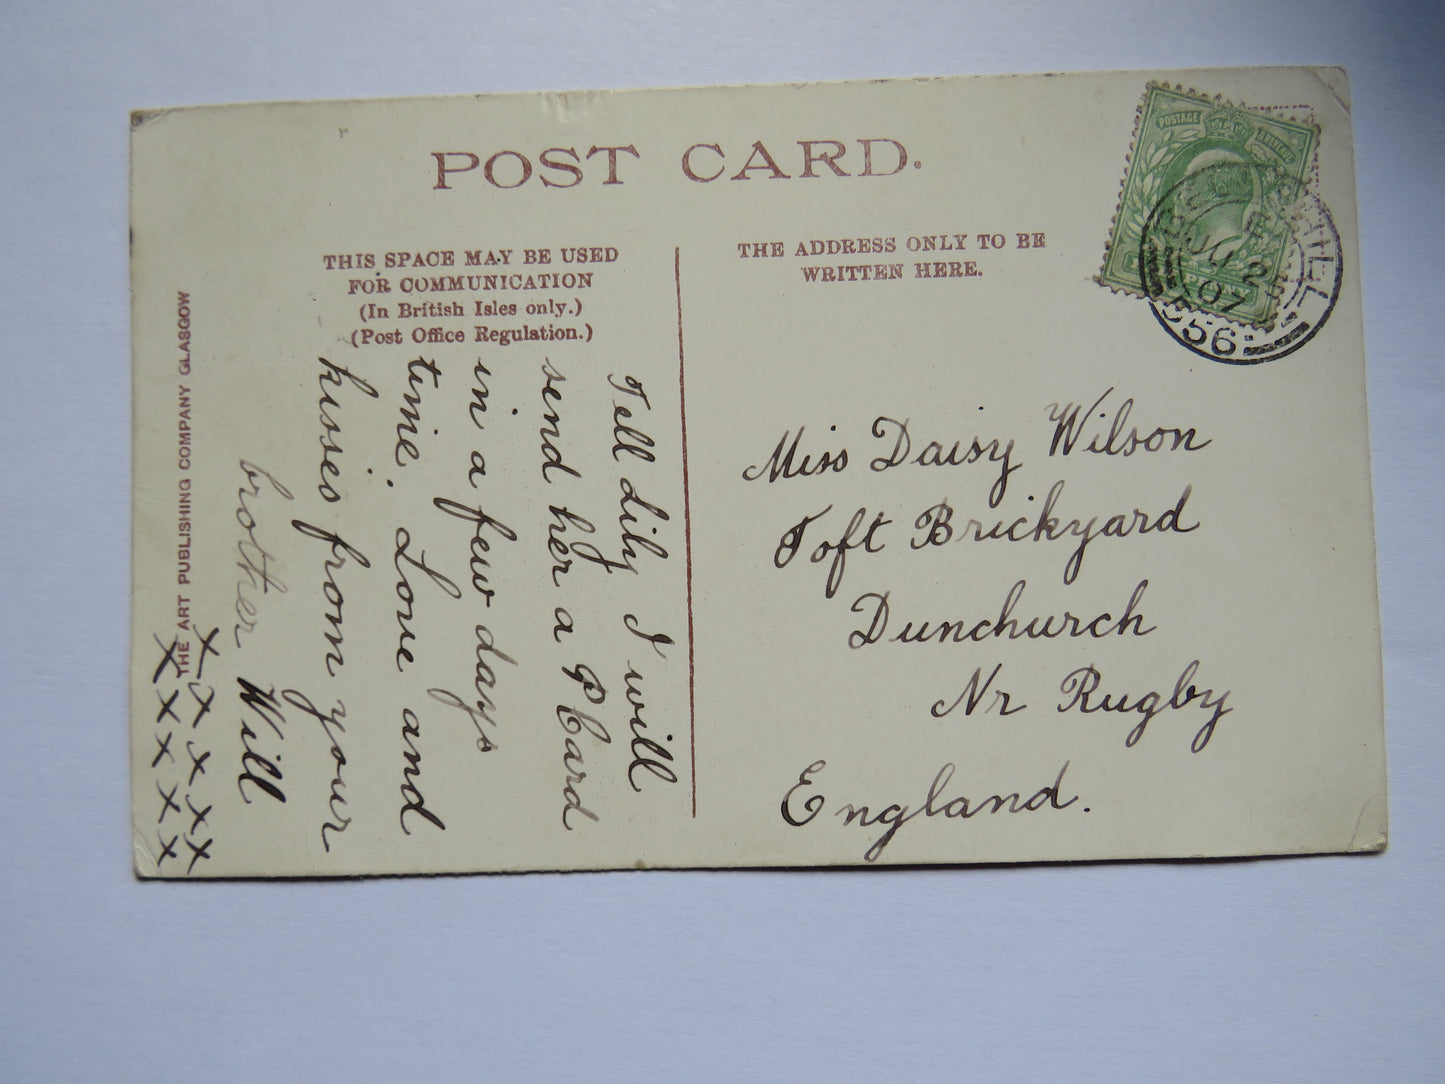 POST CARD.
THIS SPACE MAY BE USED
FOR COMMUNICATION
(In British Isles only.)
(Post Office Regulation.)
THE ADDRESS ONLY TO BE
WRITTEN HERE.
THE ART PUBLISHING COMPANY GLASGOW
Tell Lily I will
send her a P Card
in a few days
time. Love and
kisses from your
brother Will
x x x x x
x x x x x
Miss Daisy Wilson
Toft Brickyard
Dunchurch
Nr Rugby
England.
POSTAGE
JU 2
07